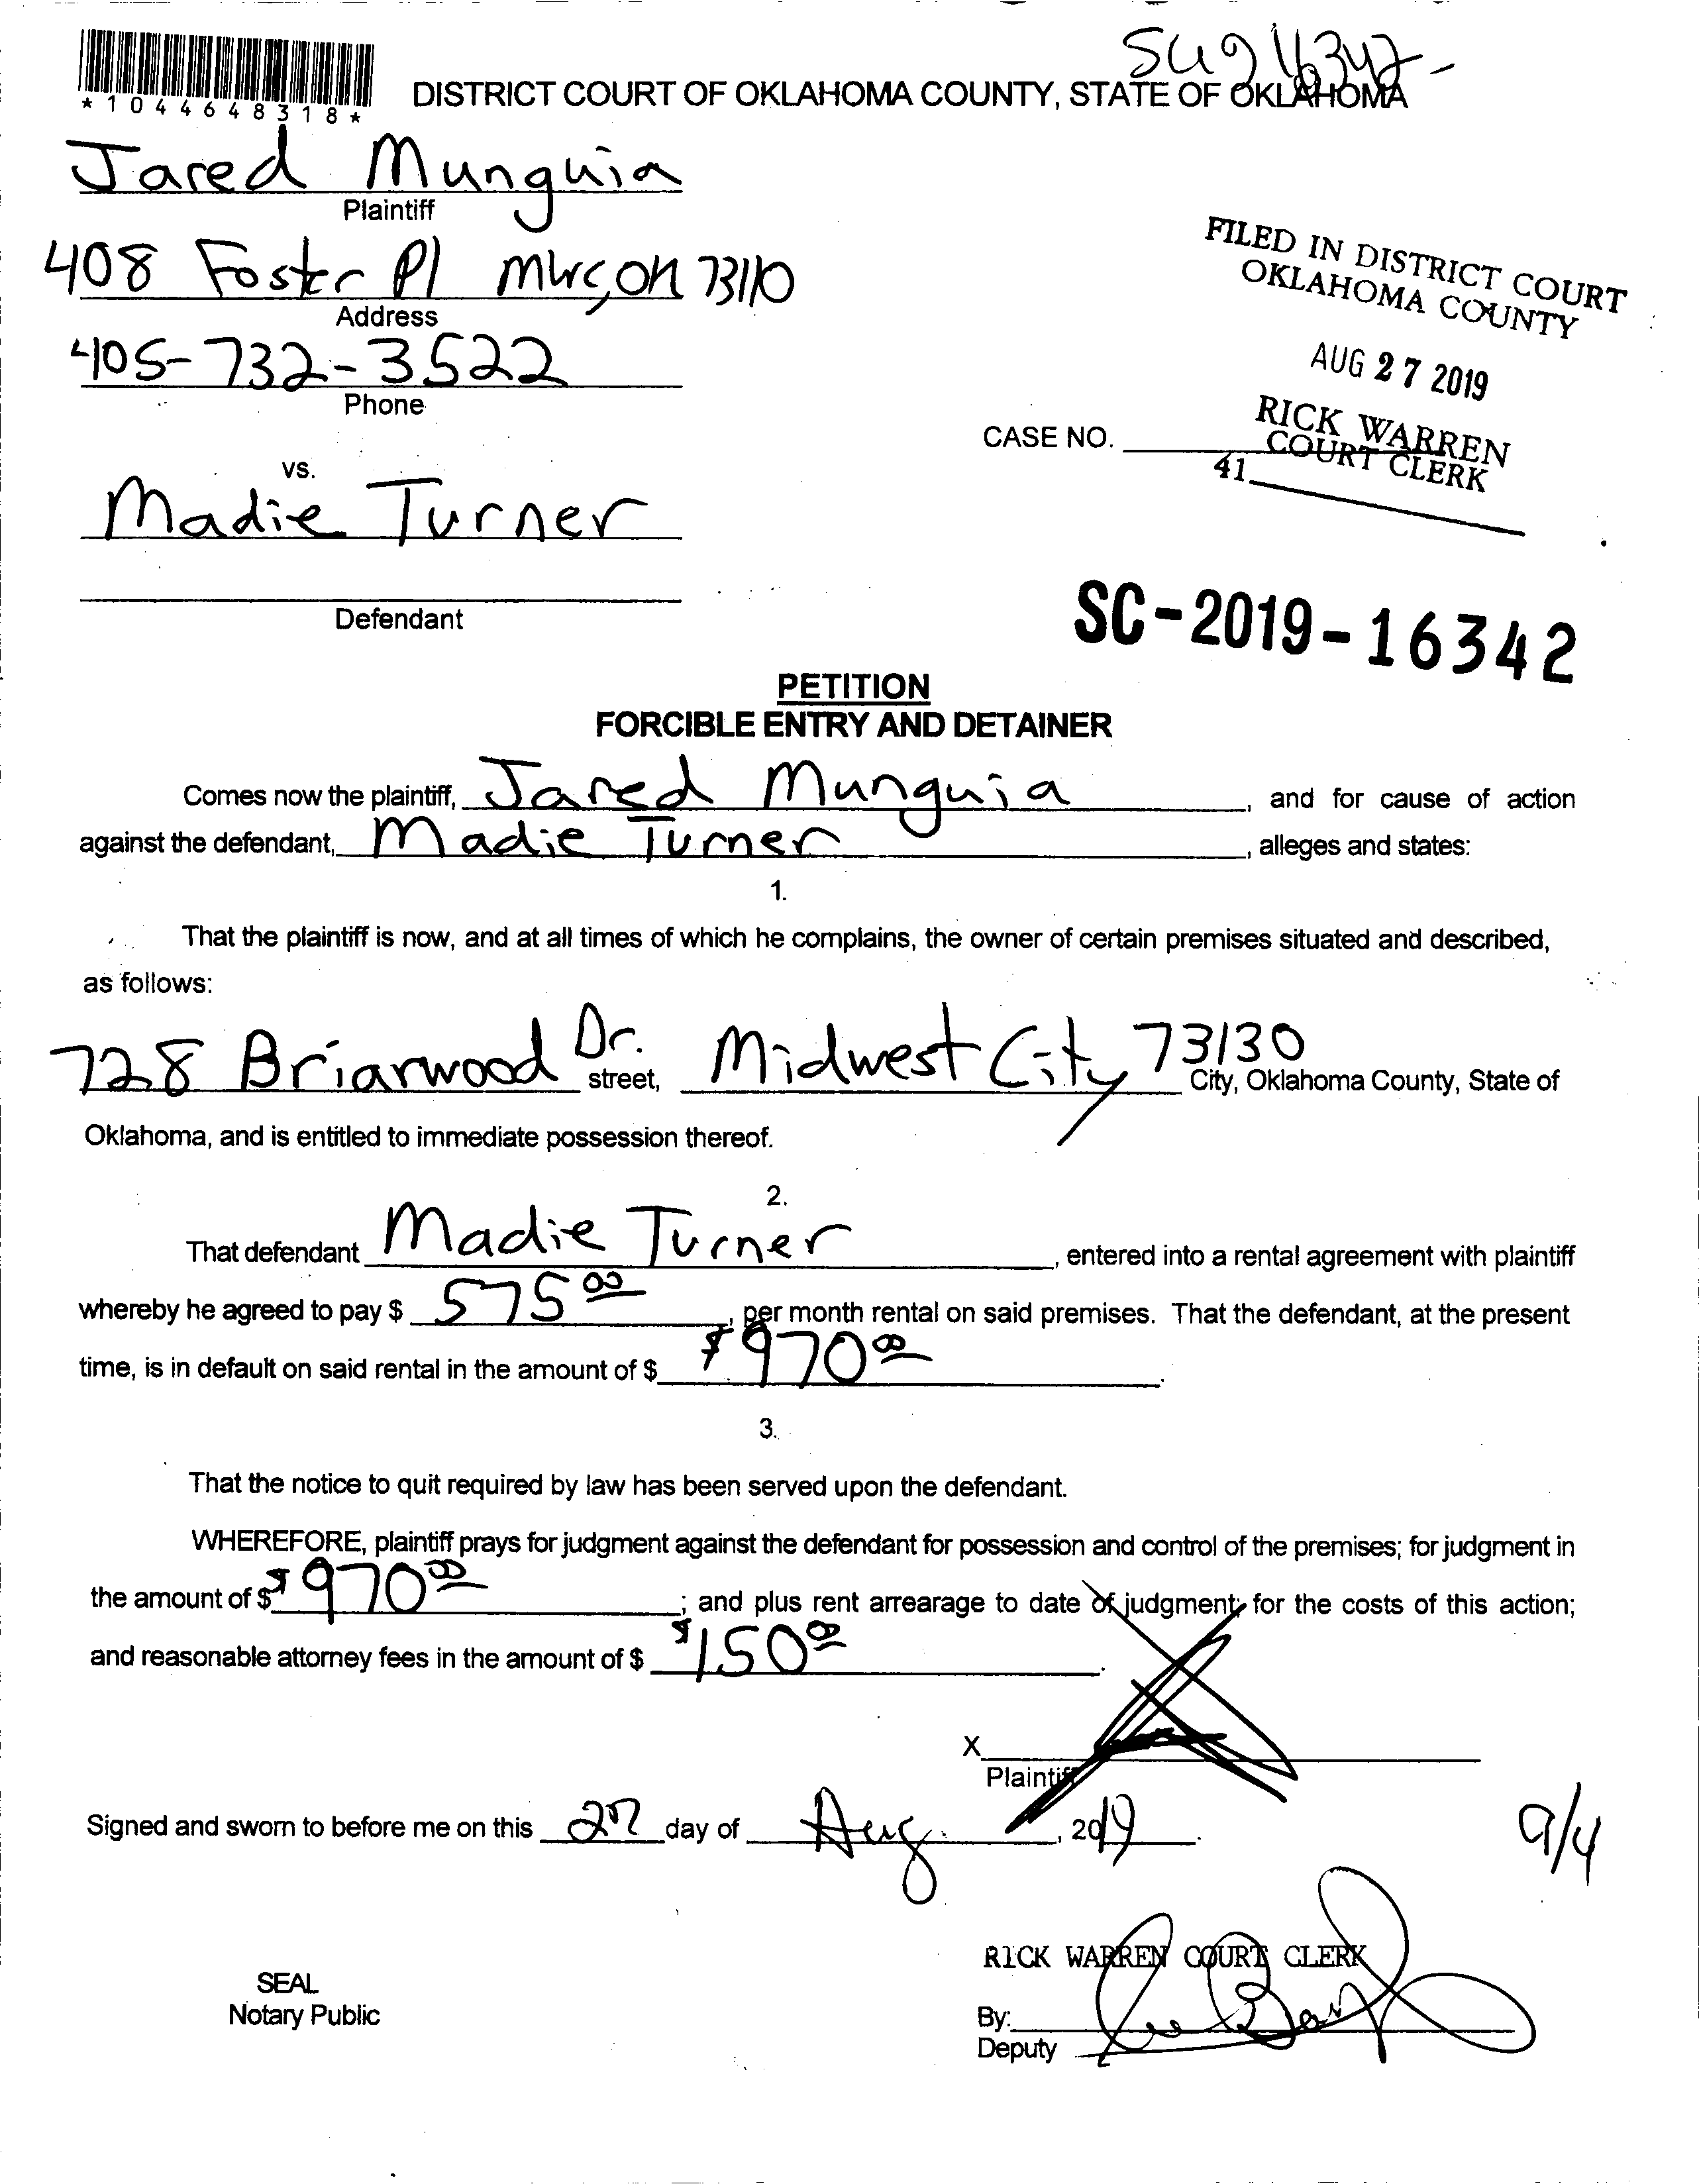 SC19 16342-
*1044648318*
DISTRICT COURT OF OKLAHOMA COUNTY, STATE OF OKLAHOMA
Jared Munguia
Plaintiff
408 Foster Pl MWC, OK 73110
Address
405-732-3522
Phone
FILED IN DISTRICT COURT
OKLAHOMA COUNTY
AUG 27 2019
RICK WARREN
COURT CLERK
41
CASE NO.
vs.
Madie Turner
Defendant
SC-2019-16342
PETITION
FORCIBLE ENTRY AND DETAINER
Comes now the plaintiff, Jared Munguia, and for cause of action
against the defendant, Madie Turner, alleges and states:
1.
That the plaintiff is now, and at all times of which he complains, the owner of certain premises situated and described,
as follows:
728 Briarwood Dr. street, Midwest City 73130 City, Oklahoma County, State of
Oklahoma, and is entitled to immediate possession thereof.
2.
That defendant Madie Turner, entered into a rental agreement with plaintiff
whereby he agreed to pay $ 575 00, per month rental on said premises. That the defendant, at the present
time, is in default on said rental in the amount of $ $970 00.
3.
That the notice to quit required by law has been served upon the defendant.
WHEREFORE, plaintiff prays for judgment against the defendant for possession and control of the premises; for judgment in
the amount of $ $970 00; and plus rent arrearage to date of judgment; for the costs of this action;
and reasonable attorney fees in the amount of $ $150 00.
X
Plaintiff
Signed and sworn to before me on this 27 day of Aug., 2019.
9/4
RICK WARREN COURT CLERK
SEAL
Notary Public
By:
Deputy